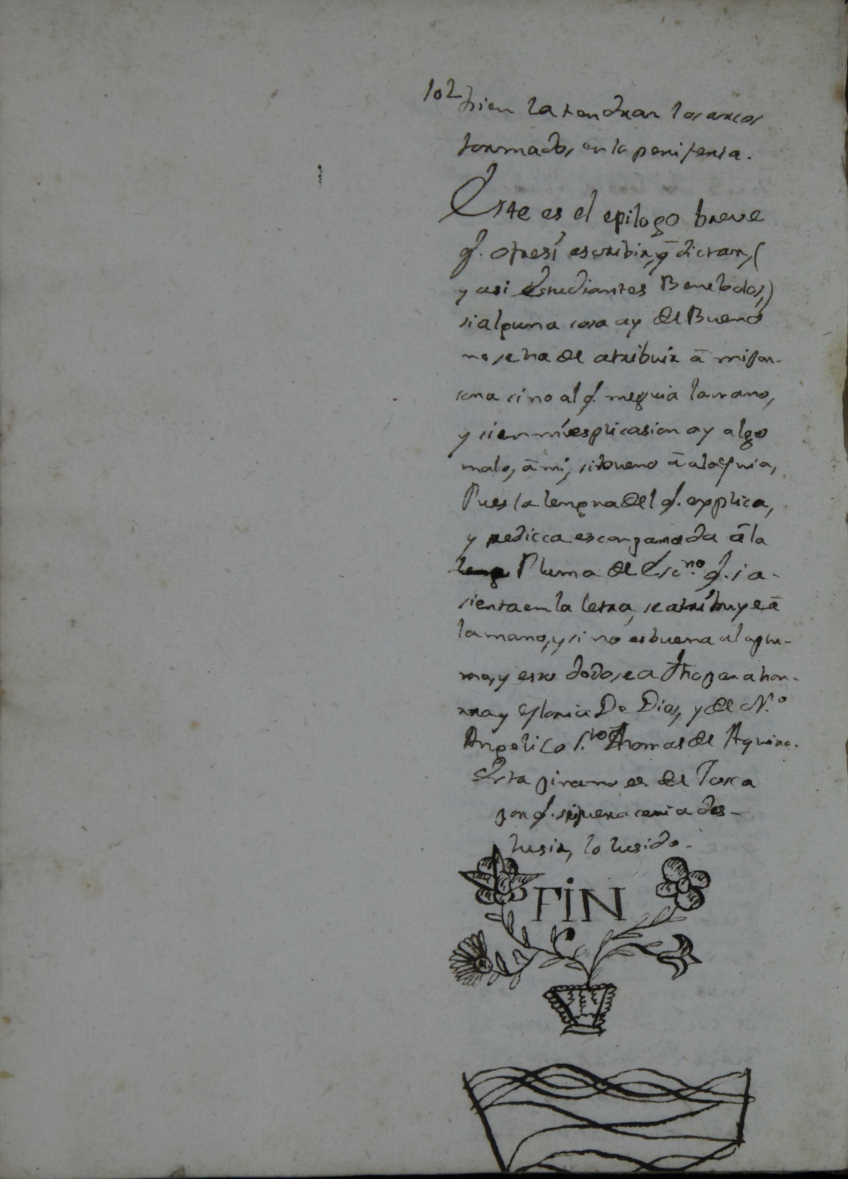 102 bien la tendran los arcos
formados en la penitensia.
Este es el epilogo breve
q. ofresi escribir, q̄ dictar, (
y asi Estudiantes Benebolos,)
si alguna cosa ay del Bueno
no se ha de atribuir ā mi per-
sona sino al q. me guia la mano,
y si en mi esplicasion ay algo
malo, ā mi, si bueno ā
Pues la lengua del q. explica,
y predicca es conparada ā la
Pluma de Esc.no q. si a-
sienta en la letra, se atribuye ā
la mano, y si no es buena a la plu-
ma, y esto todo sea para hon-
rra y Gloria De Dios, y de N.o
Angelico S.to Thomas de Aquino.
Esta es de Tosca
por q.
lusir, lo lusido.
FiN